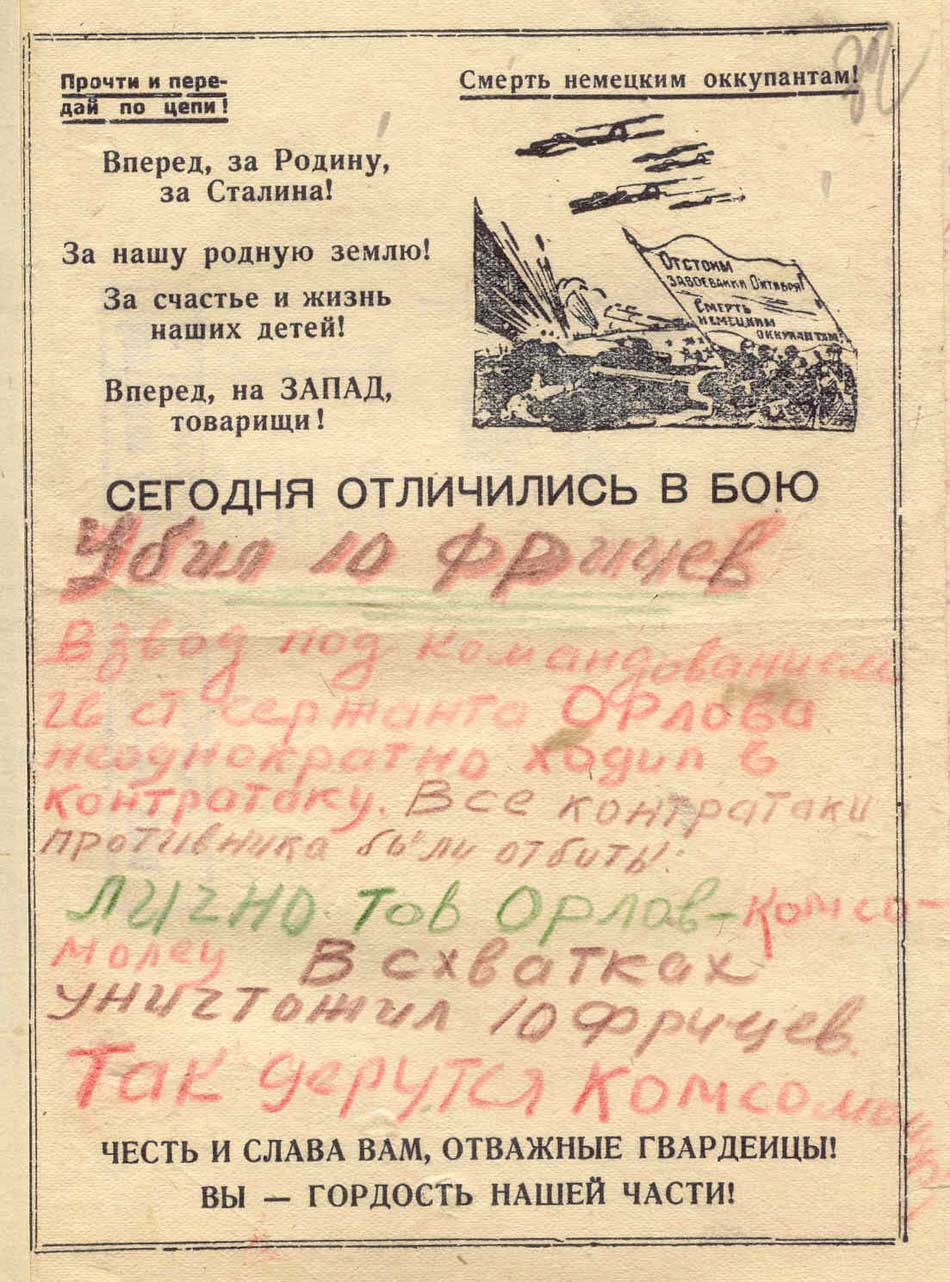 Прочти и пере-
дай по цепи!
Смерть немецким оккупантам!
Вперед, за Родину,
за Сталина!
За нашу родную землю!
За счастье и жизнь
наших детей!
Вперед, на ЗАПАД,
товарищи!
Отстоим
завоевания Октября!
Смерть
немецким
оккупантам!
СЕГОДНЯ ОТЛИЧИЛИСЬ В БОЮ
Убил 10 фрицев
Взвод под командованием
гв ст сержанта Орлова
неоднократно ходил в
контратаку. Все контратаки
противника были отбиты.
Лично тов Орлов-комсо-
молец В схватках
уничтожил 10 фрицев.
Так дерутся Комсомольцы
ЧЕСТЬ И СЛАВА ВАМ, ОТВАЖНЫЕ ГВАРДЕИЦЫ!
ВЫ — ГОРДОСТЬ НАШЕЙ ЧАСТИ!